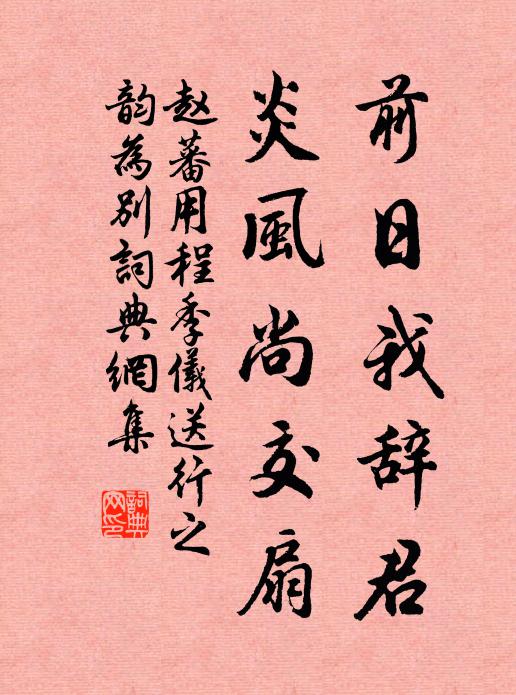 前日我辞君
炎風尚交扇
赵蕃用程季儀送行之
韵為别詞典網集
詞典网印